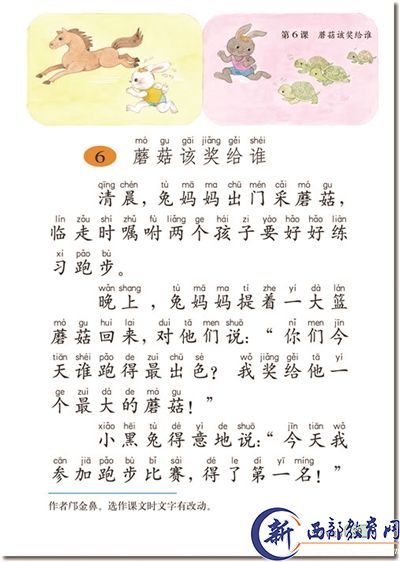 第6课 蘑菇该奖给谁
mó gu gāi jiǎng gěi shéi
6 蘑菇该奖给谁
qīng chén tù mā ma chū mén cǎi mó gu
清晨，兔妈妈出门采蘑菇，
lín zǒu shí zhǔ fù liǎng ge hái zi yào hǎo hǎo liàn
临走时嘱咐两个孩子要好好练
xí pǎo bù
习跑步。
wǎn shang tù mā ma tí zhe yí dà lán
晚上，兔妈妈提着一大篮
mó gu huí lai duì tā men shuō nǐ men jīn
蘑菇回来，对他们说：“你们今
tiān shéi pǎo de zuì chū sè wǒ jiǎng gěi tā yí
天谁跑得最出色？我奖给他一
ge zuì dà de mó gu
个最大的蘑菇！”
xiǎo hēi tù dé yì de shuō jīn tiān wǒ
小黑兔得意地说：“今天我
cān jiā pǎo bù bǐ sài dé le dì yī míng
参加跑步比赛，得了第一名！”
作者邝金鼻。选作课文时文字有改动。
新 西部教育网